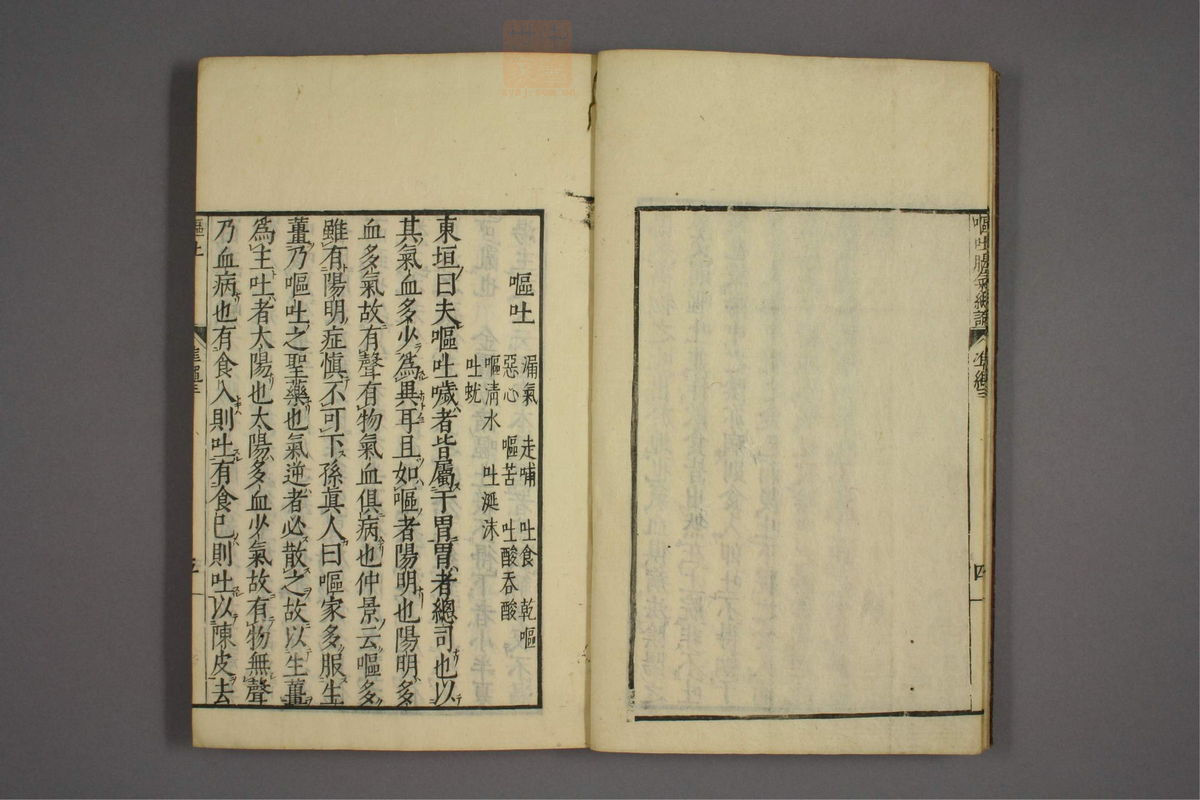 嘔吐膈氣總論 準繩三 四
嘔吐
漏氣 走哺 吐食 乾嘔
惡心 嘔苦 吐酸吞酸
嘔清水 吐涎沫
吐蚘
東垣曰夫嘔吐噦者皆屬于胃胃者總司也以
其氣血多少爲異耳且如嘔者陽明也陽明多
血多氣故有聲有物氣血俱病也仲景云嘔多
雖有陽明症慎不可下孫真人曰嘔家多服生
薑乃嘔吐之聖藥也氣逆者必散之故以生薑
爲主吐者太陽也太陽多血少氣故有物無聲
乃血病也有食入則吐有食已則吐以陳皮去
嘔吐